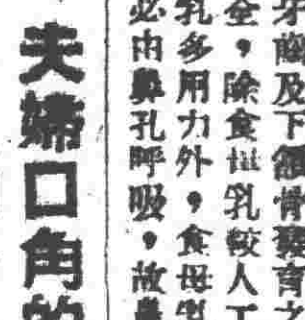 牙齒及下顎骨發育之
全，除食母乳較人工
乳多用力外，食母乳
必由鼻孔呼吸，故鼻
夫婦口角的